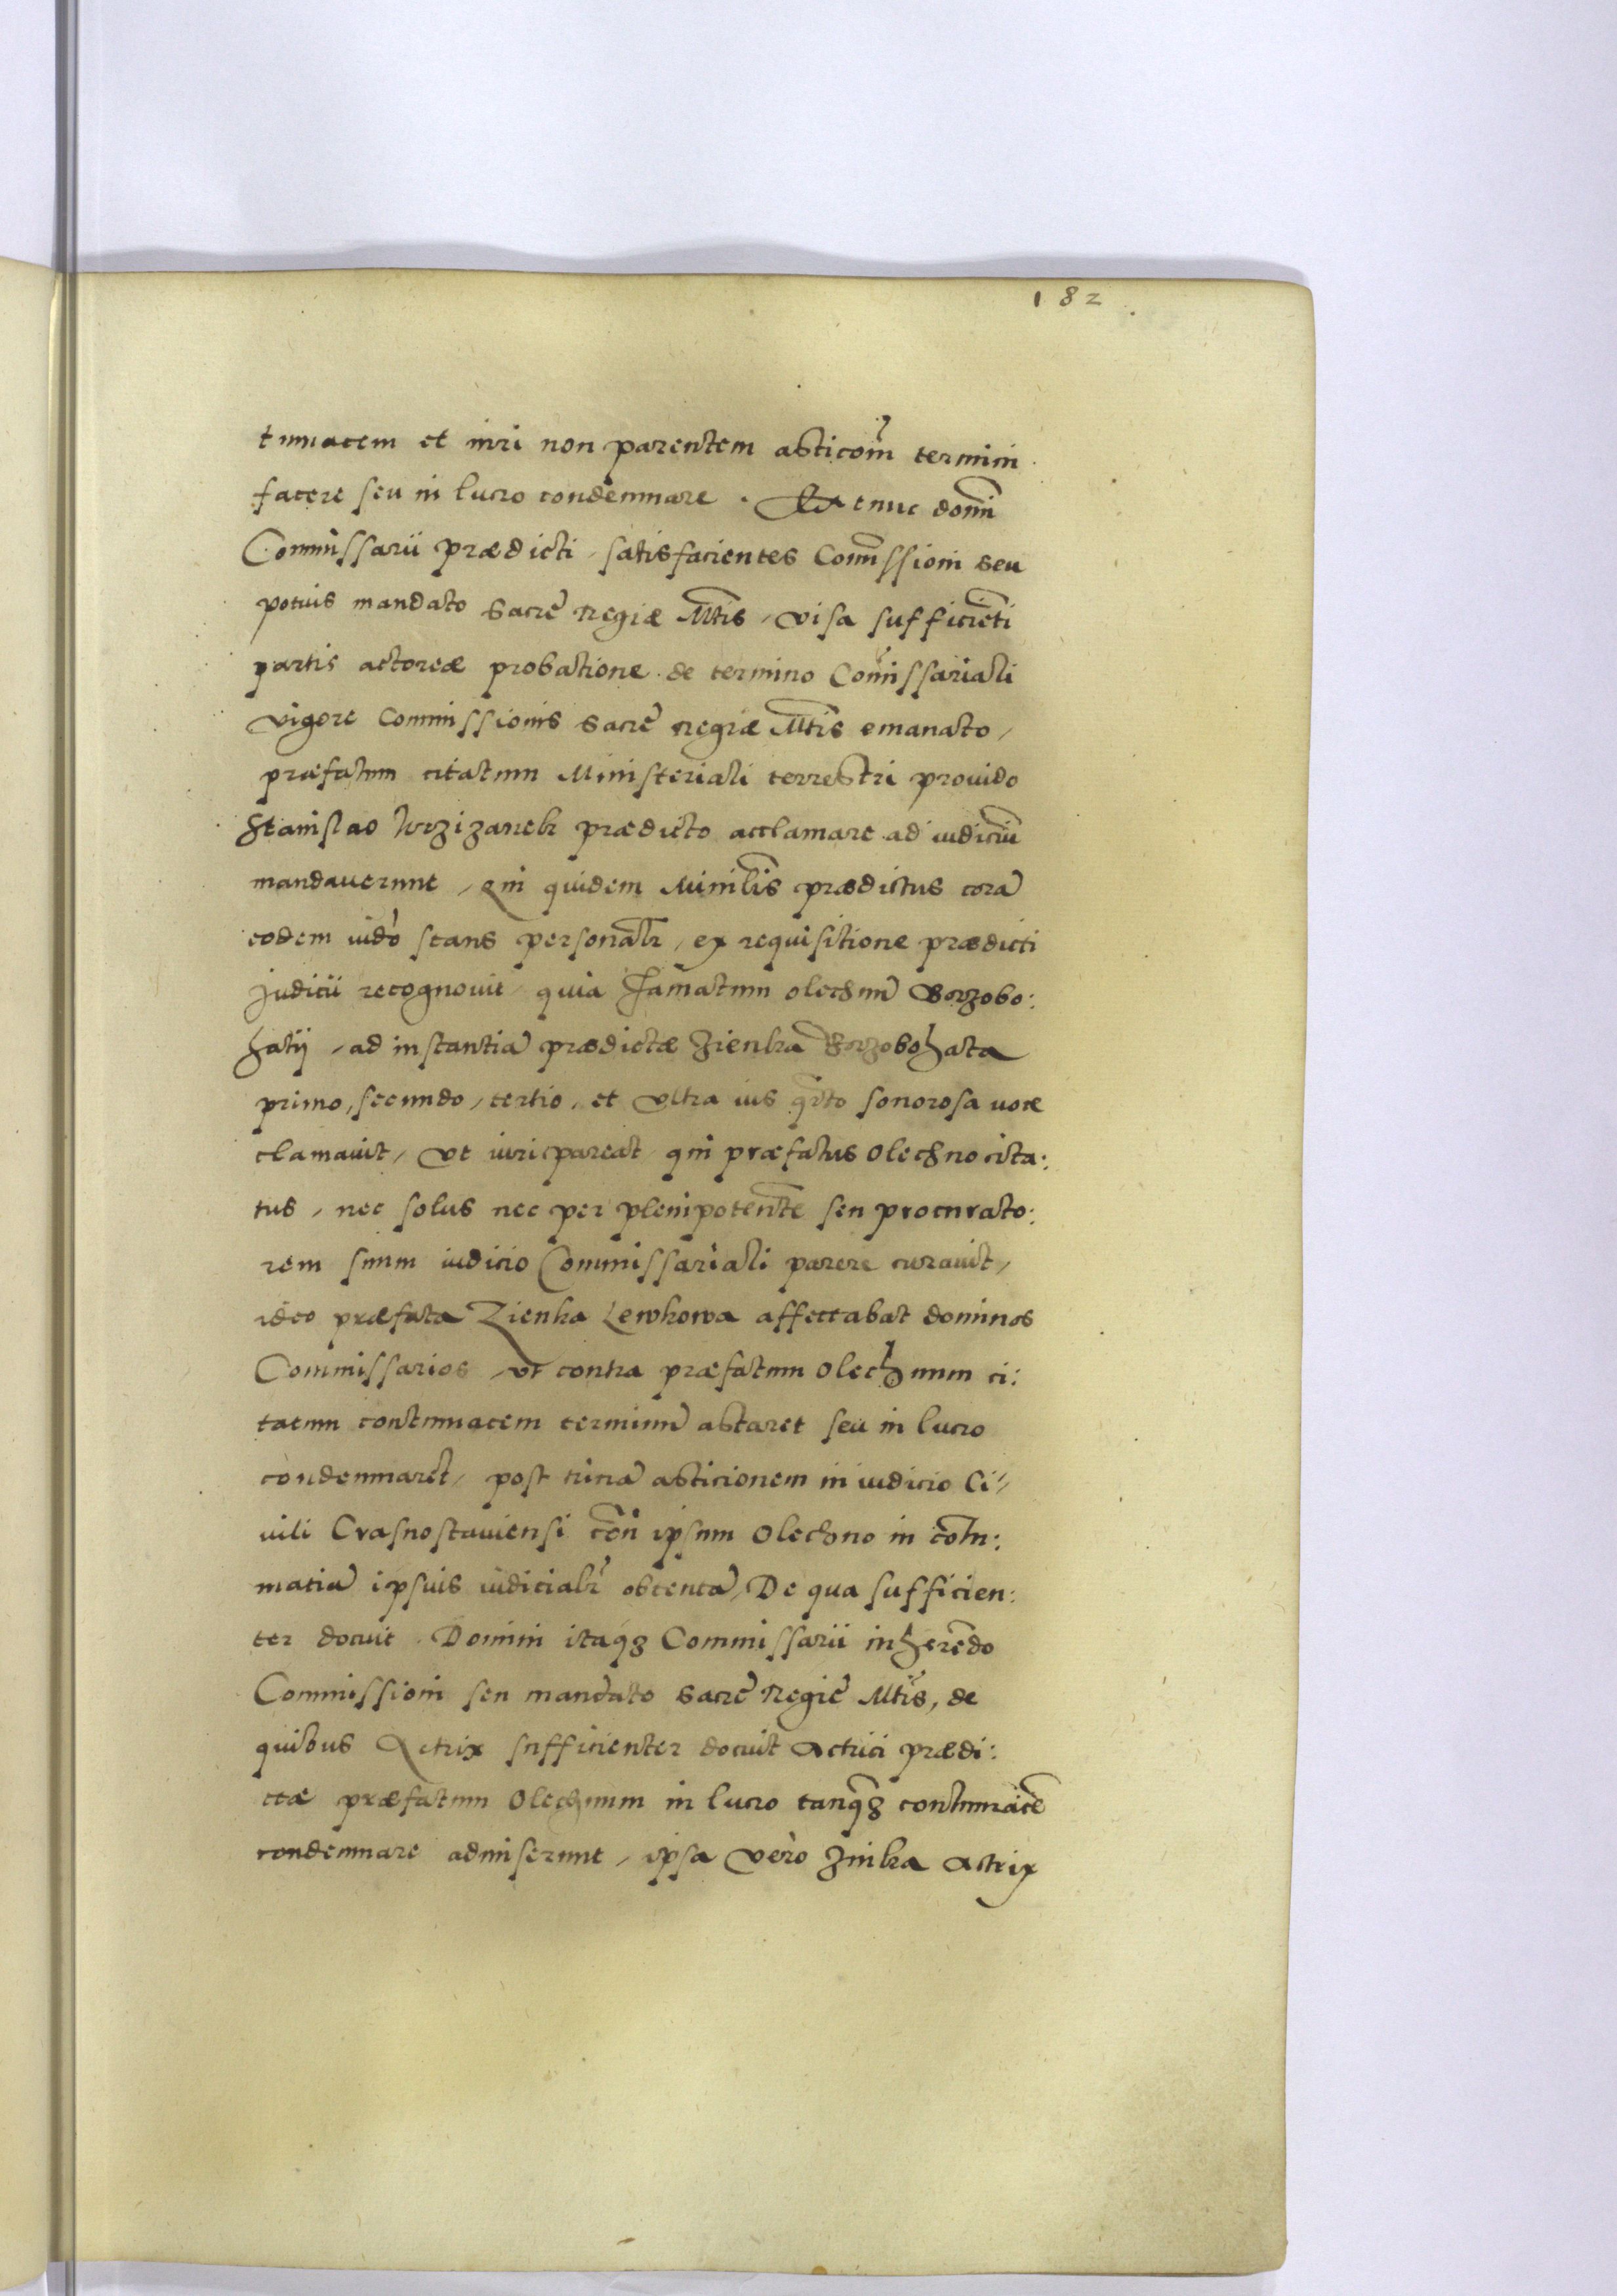 182
tumacem et iuri non parentem asticom̃ termini
facere seu in lucro condemnare. Et tunc domĩ
Commissarii prædicti, satisfacientes Comissioni seu
potius mandato Sacrẽ Regiæ Mtis, visa sufficieti
partis actoreæ probatione de termino Comissariali
vigore Commissionis sacrẽ regiæ Mtis emanato,
præfatum citatum Ministeriali terrestri prouido
Stanislao prædicto acclamare ad iudiciũ
mandauerunt, qui quidem Minilis prædictus corã
eodem iudõ stans personalr, ex requisitione prædicti
Judicii recognouit, quia famatum Olechnũ Borzobo:
hatij, ad instantiã prædictæ Zienka Borzobohata
primo, secundo, tertio, et vltra ius qrto sonorosa uoce
clamauit, vt iuri pareat, qui præfatus Olechno cita:
tus, nec solus nec per plenipotentẽ seu procurato:
rem suum iudicio Commissariali parere curauit,
ideo præfata Zienka Lewkowa affectabat dominos
Commissarios, vt contra præfatum Olechnum ci:
tatum contumacem terminũ astaret seu in lucro
condemnaret, post trinã asticionem in iudicio Ci,,
uili Crasnostauiensi con ipsum Olechno in cotu:
matiã ipsius iudicialr obtentã, De qua sufficien:
ter docuit. Domini itaq3 Commissarii inherẽdo
Commissioni seu mandato Sacrẽ Regiẽ Mtis, de
quibus Actrix sufficienter docuit Actrici prædi:
ctæ præfatum Olechnum in lucro tanq3 contumacẽ
condemnare admiserunt, ipsa verò Zinka Actrix